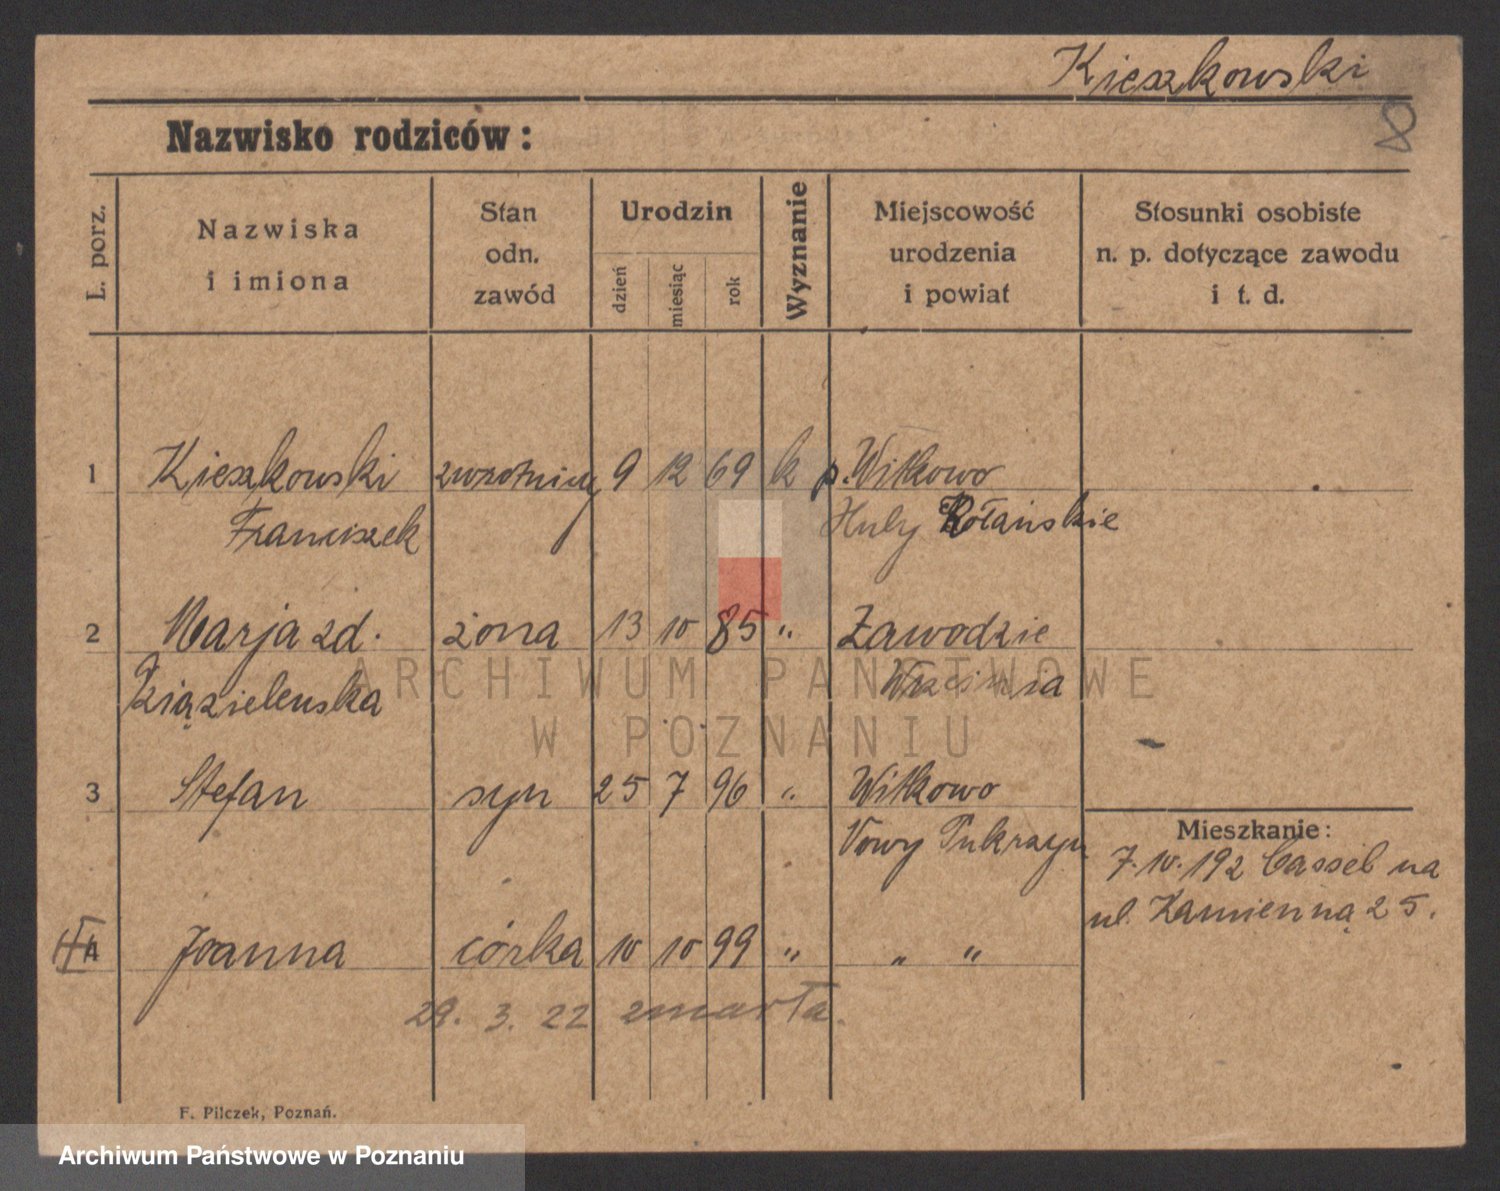 Kieszkowski
8
Nazwisko rodziców:
L. porz.
Nazwiska
i imiona
Stan
odn.
zawód
Urodzin
dzień
miesiąc
rok
Wyznanie
Miejscowość
urodzenia
i powiat
Stosunki osobiste
n. p. dotyczące zawodu
i t. d.
1 Kieszkowski zwrotniczy 9 12 69 k p. Witkowo
Franciszek Huby
2 Marja zd. żona 13 10 85 " Zawodzie
Września
ARCHIWUM PAŃSTWOWE
W POZNANIU
3 Stefan syn 25 7 96 " Witkowo
Mieszkanie:
7.10.192 Cassel na
ul. Kamienną 25.
4 Joanna córka 10 10 99 " " "
29. 3. 22 zmarła.
F. Pilczek, Poznań.
Archiwum Państwowe w Poznaniu